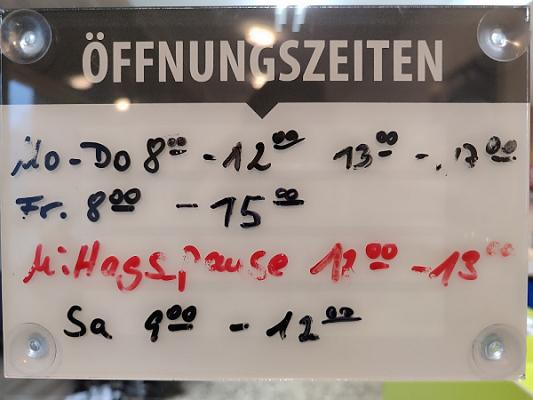 ÖFFNUNGSZEITEN
Mo-Do 8⁰⁰ - 12⁰⁰ 13⁰⁰ - 17⁰⁰
Fr. 8⁰⁰ - 15⁰⁰
Mittagspause 12⁰⁰ - 13⁰⁰
Sa 9⁰⁰ - 12⁰⁰